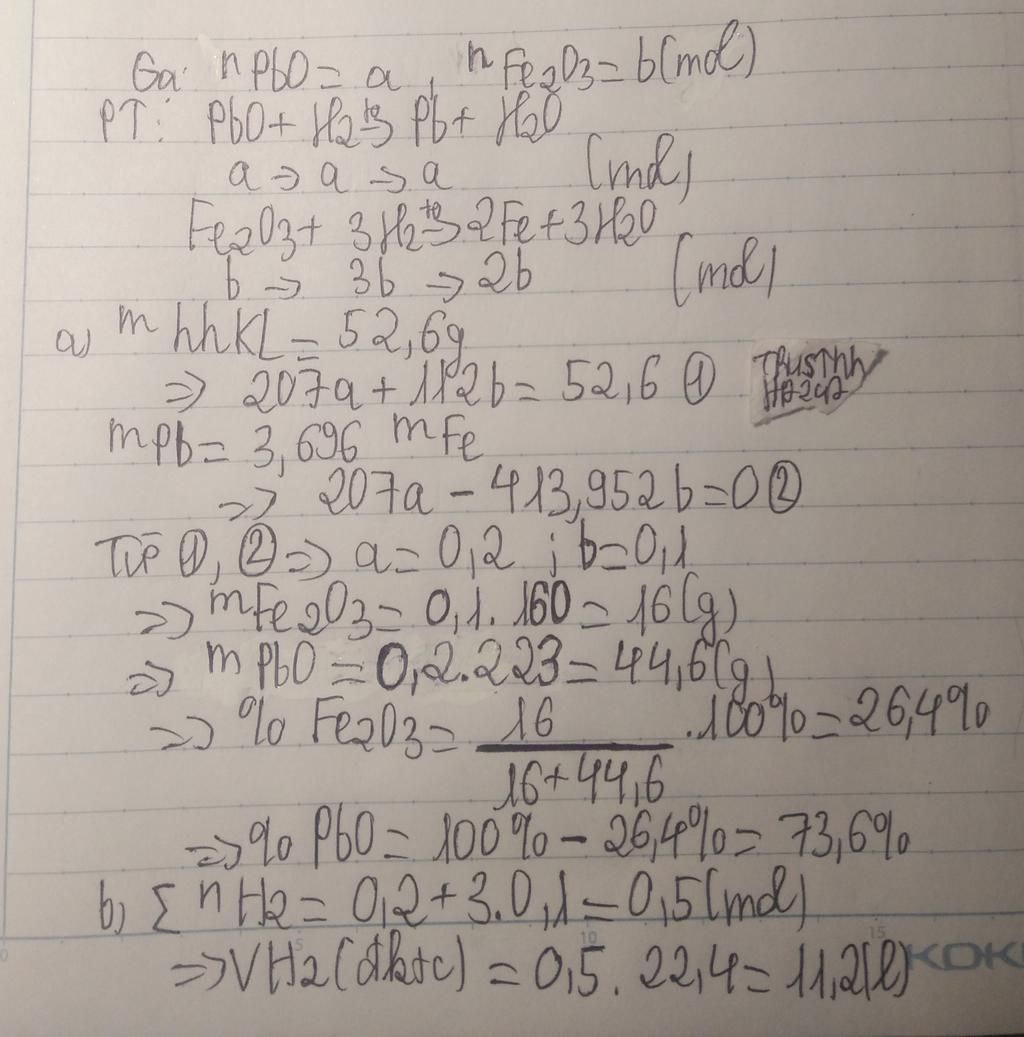 Gọi nPbO = a, nFe2O3 = b(mol)
PT: PbO + H2 t°→ Pb + H2O
a → a → a (mol)
Fe2O3 + 3H2 t°→ 2Fe + 3H2O
b → 3b → 2b (mol)
a) m hhKL = 52,6g
=> 207a + 112b = 52,6 ①
mPb = 3,696 mFe
=> 207a - 413,952b = 0 ②
Từ ①, ② => a = 0,2 ; b = 0,1
=> mFe2O3 = 0,1.160 = 16(g)
=> mPbO = 0,2.223 = 44,6(g)
=> % Fe2O3 = 16 / 16+44,6 .100% = 26,4%
=> % PbO = 100% - 26,4% = 73,6%
b) Σ nH2 = 0,2 + 3.0,1 = 0,5(mol)
=> VH2(đktc) = 0,5. 22,4 = 11,2(l)
5 10 15